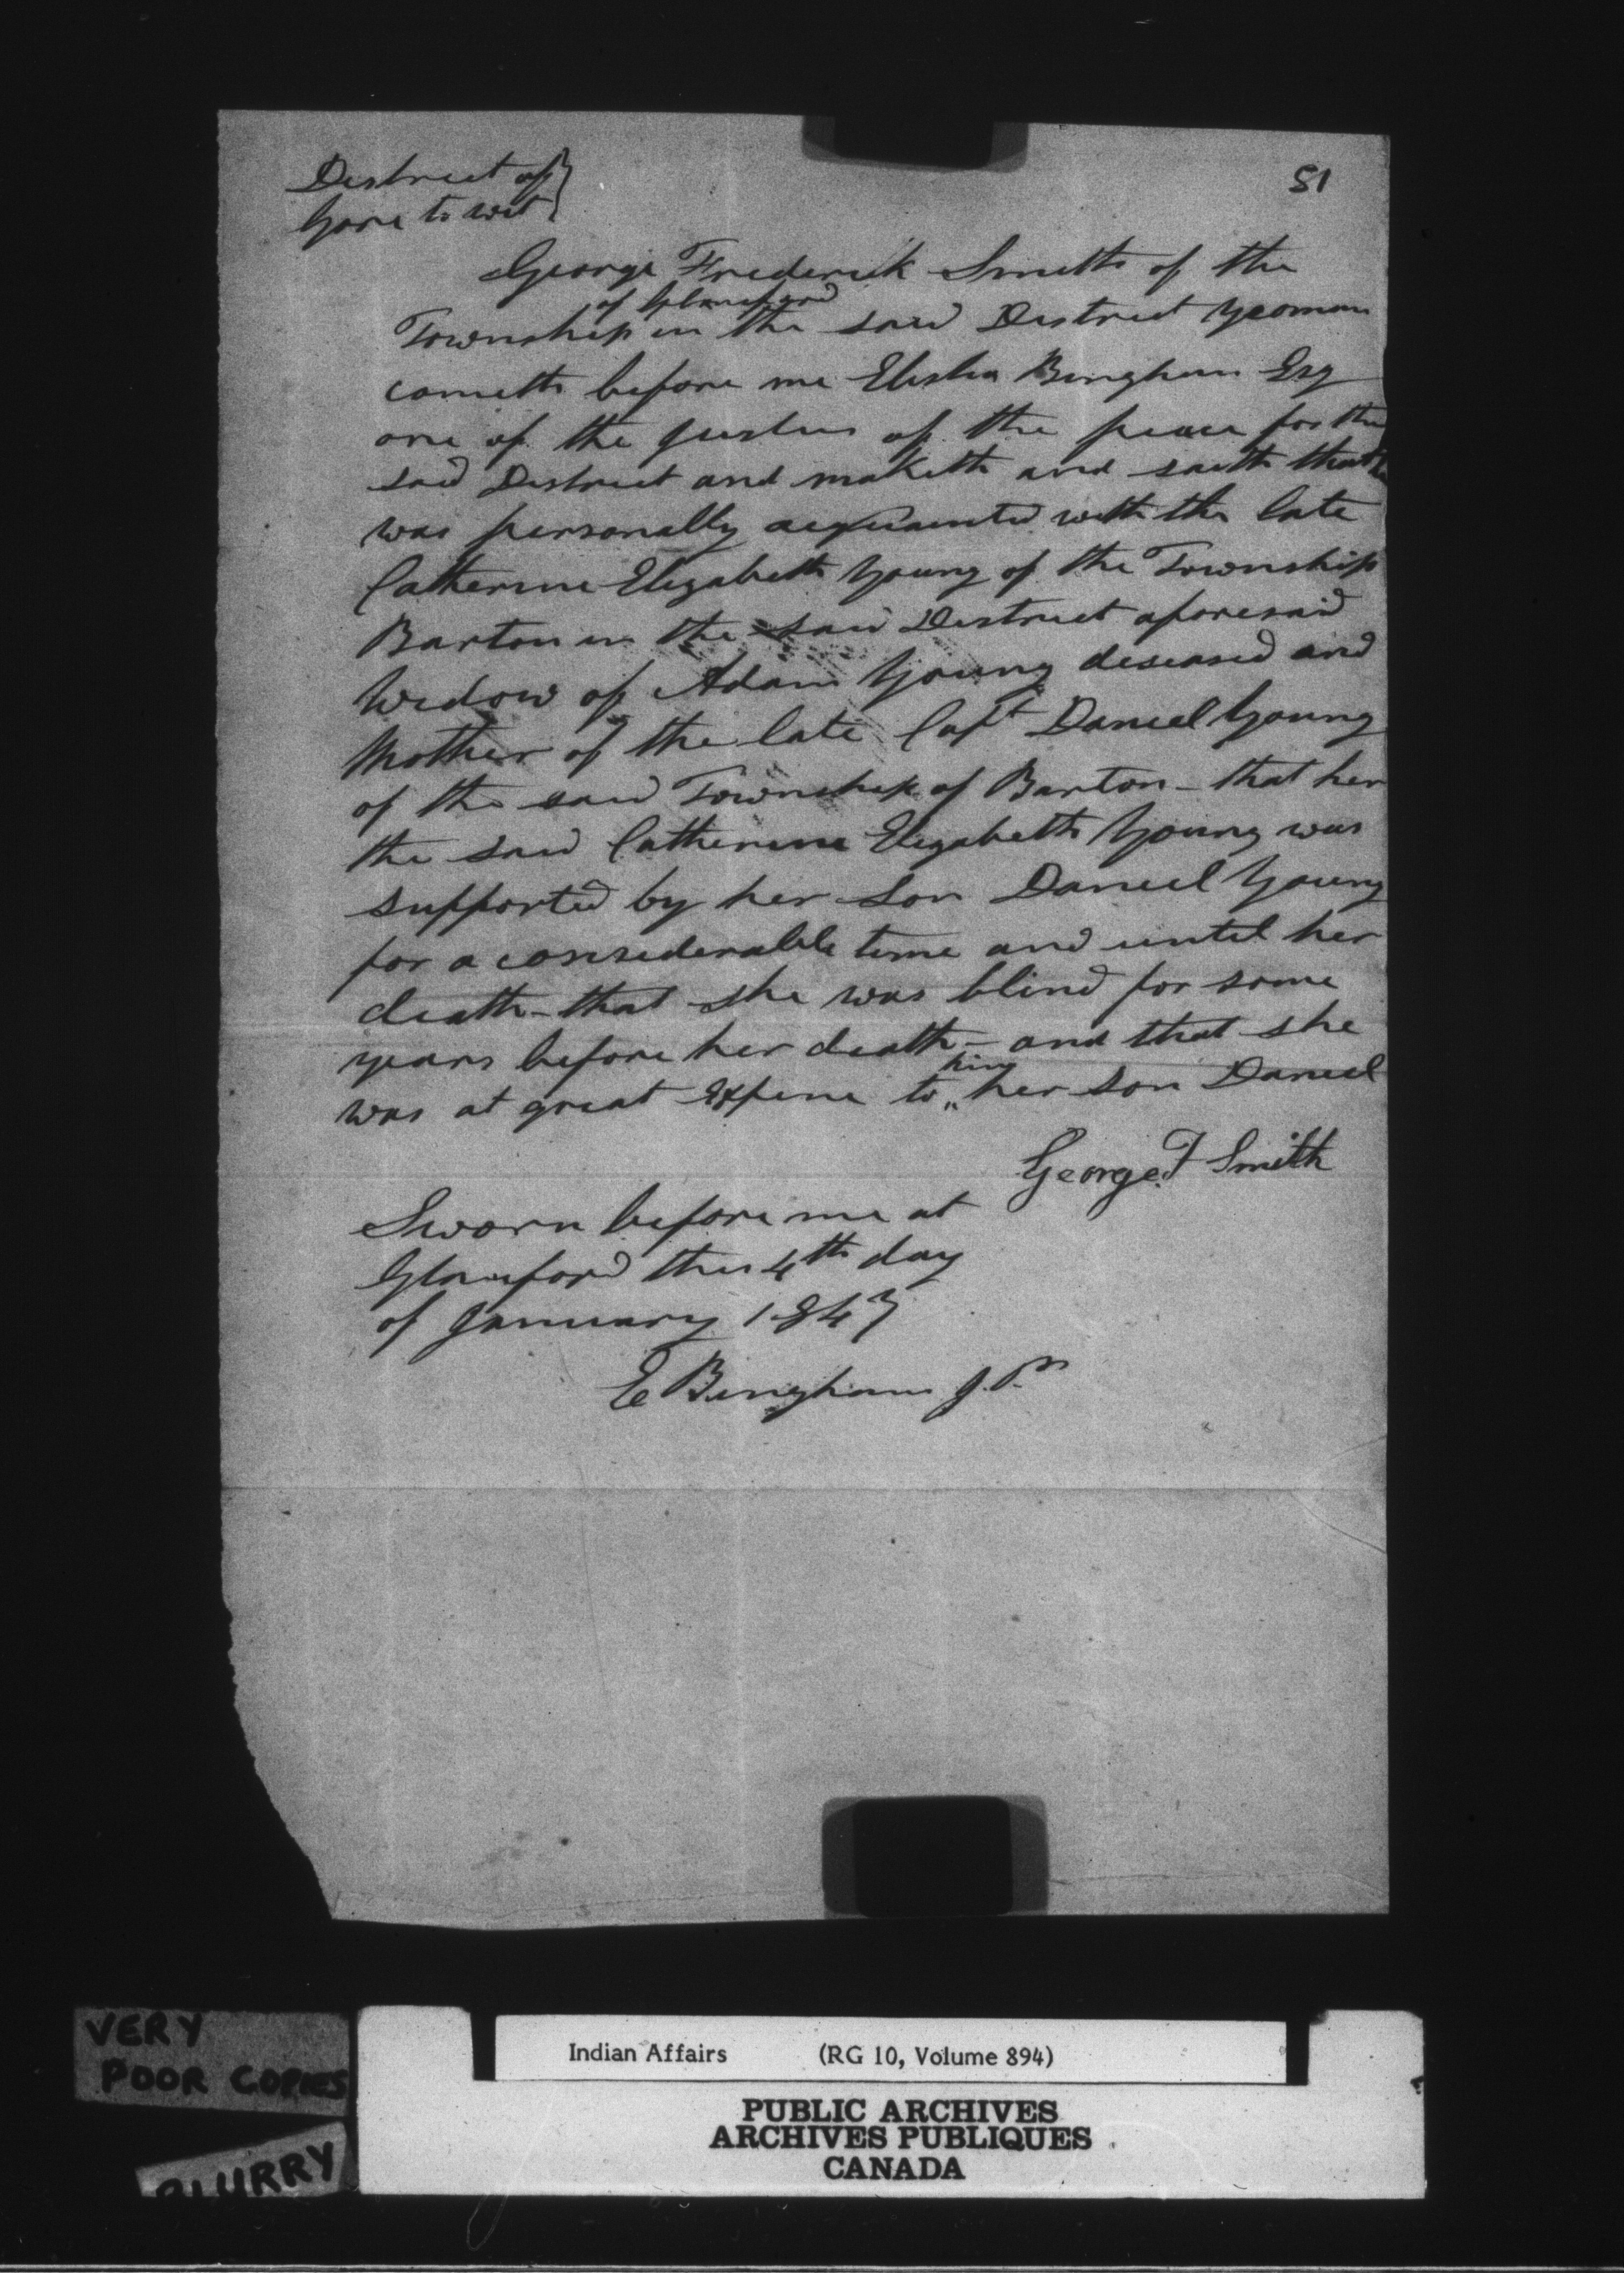 District of }
Gore to wit }
51
George Frederick Smith of the
of Glanford
Township in the said District yeoman
cometh before me Elisha Bingham Esq
one of the Justus of the peace for the
said District and maketh and saith that he
was personally acquainted with the late
Catherine Elizabeth Young of the Township
Barton in the said District aforesaid
Widow of Adam Young deseased and
Mother of the late Capt Daniel Young
of the said Township of Barton - that her
the said Catherine Elizabeth Young was
supported by her Son Daniel Young
for a considerable time and until her
death - that she was blind for some
years before her death - and that she
him
was at great Expene to " her son Daniel
George F Smith
Sworn before me at
Glanford this 4th day
of January 1847
E Bingham J.P.
VERY
POOR COPIES
BLURRY
Indian Affairs (RG 10, Volume 894)
PUBLIC ARCHIVES
ARCHIVES PUBLIQUES
CANADA